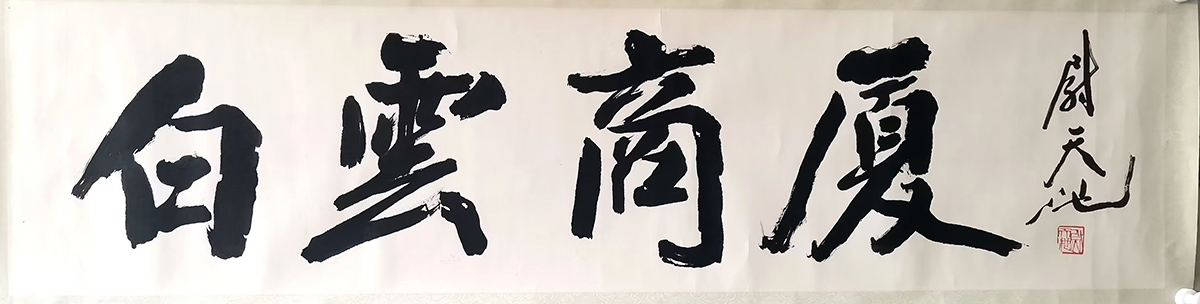 白雲商厦
尉天池